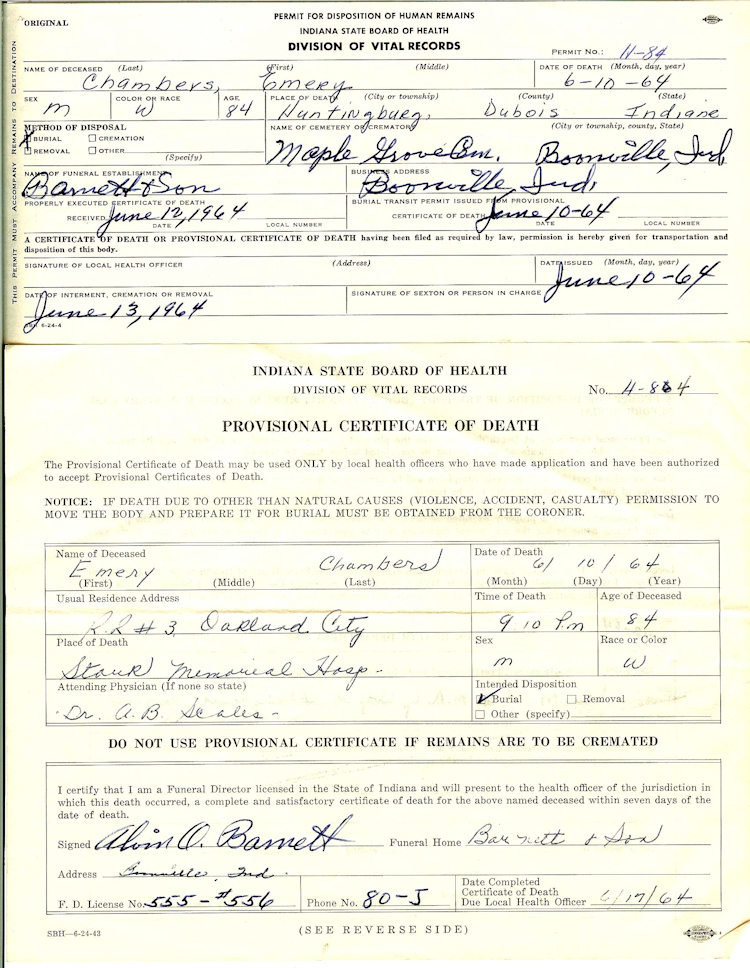 ORIGINAL
PERMIT FOR DISPOSITION OF HUMAN REMAINS
INDIANA STATE BOARD OF HEALTH
DIVISION OF VITAL RECORDS
PERMIT NO.: H-84
THIS PERMIT MUST ACCOMPANY REMAINS TO DESTINATION
NAME OF DECEASED (Last) (First) (Middle) DATE OF DEATH (Month, day, year)
Chambers, Emery 6-10-64
SEX COLOR OR RACE AGE PLACE OF DEATH (City or township) (County) (State)
M W 84 Huntingburg, Dubois Indiana
METHOD OF DISPOSAL NAME OF CEMETERY OR CREMATORY (City or township, county, State)
BURIAL CREMATION
REMOVAL OTHER
(Specify)
Maple Grove Cem. Boonville, Ind.
NAME OF FUNERAL ESTABLISHMENT BUSINESS ADDRESS
Barnett & Son Boonville, Ind.
PROPERLY EXECUTED CERTIFICATE OF DEATH BURIAL TRANSIT PERMIT ISSUED FROM PROVISIONAL
RECEIVED June 12, 1964 CERTIFICATE OF DEATH June 10-64
DATE LOCAL NUMBER DATE LOCAL NUMBER
A CERTIFICATE OF DEATH OR PROVISIONAL CERTIFICATE OF DEATH having been filed as required by law, permission is hereby given for transportation and
disposition of this body.
SIGNATURE OF LOCAL HEALTH OFFICER (Address) DATE ISSUED (Month, day, year)
June 10-64
DATE OF INTERMENT, CREMATION OR REMOVAL SIGNATURE OF SEXTON OR PERSON IN CHARGE
June 13, 1964
SBH 6-24-4
INDIANA STATE BOARD OF HEALTH
DIVISION OF VITAL RECORDS No. H-84
PROVISIONAL CERTIFICATE OF DEATH
The Provisional Certificate of Death may be used ONLY by local health officers who have made application and have been authorized
to accept Provisional Certificates of Death.
NOTICE: IF DEATH DUE TO OTHER THAN NATURAL CAUSES (VIOLENCE, ACCIDENT, CASUALTY) PERMISSION TO
MOVE THE BODY AND PREPARE IT FOR BURIAL MUST BE OBTAINED FROM THE CORONER.
Name of Deceased Date of Death
Emery Chambers 6/ 10/ 64
(First) (Middle) (Last) (Month) (Day) (Year)
Usual Residence Address Time of Death Age of Deceased
R.R # 3, Oakland City 9 10 P.m 84
Place of Death Sex Race or Color
Stork Memorial Hosp. M W
Attending Physician (If none so state) Intended Disposition
Dr. A.B. Scales Burial Removal
Other (specify)
DO NOT USE PROVISIONAL CERTIFICATE IF REMAINS ARE TO BE CREMATED
I certify that I am a Funeral Director licensed in the State of Indiana and will present to the health officer of the jurisdiction in
which this death occurred, a complete and satisfactory certificate of death for the above named deceased within seven days of the
date of death.
Signed Alvin O. Barnett Funeral Home Barnett & Son
Address Boonville, Ind.
F. D. License No. 555-#556 Phone No. 80-J Date Completed
Certificate of Death
Due Local Health Officer 6/17/64
SBH—6-24-43 (SEE REVERSE SIDE)